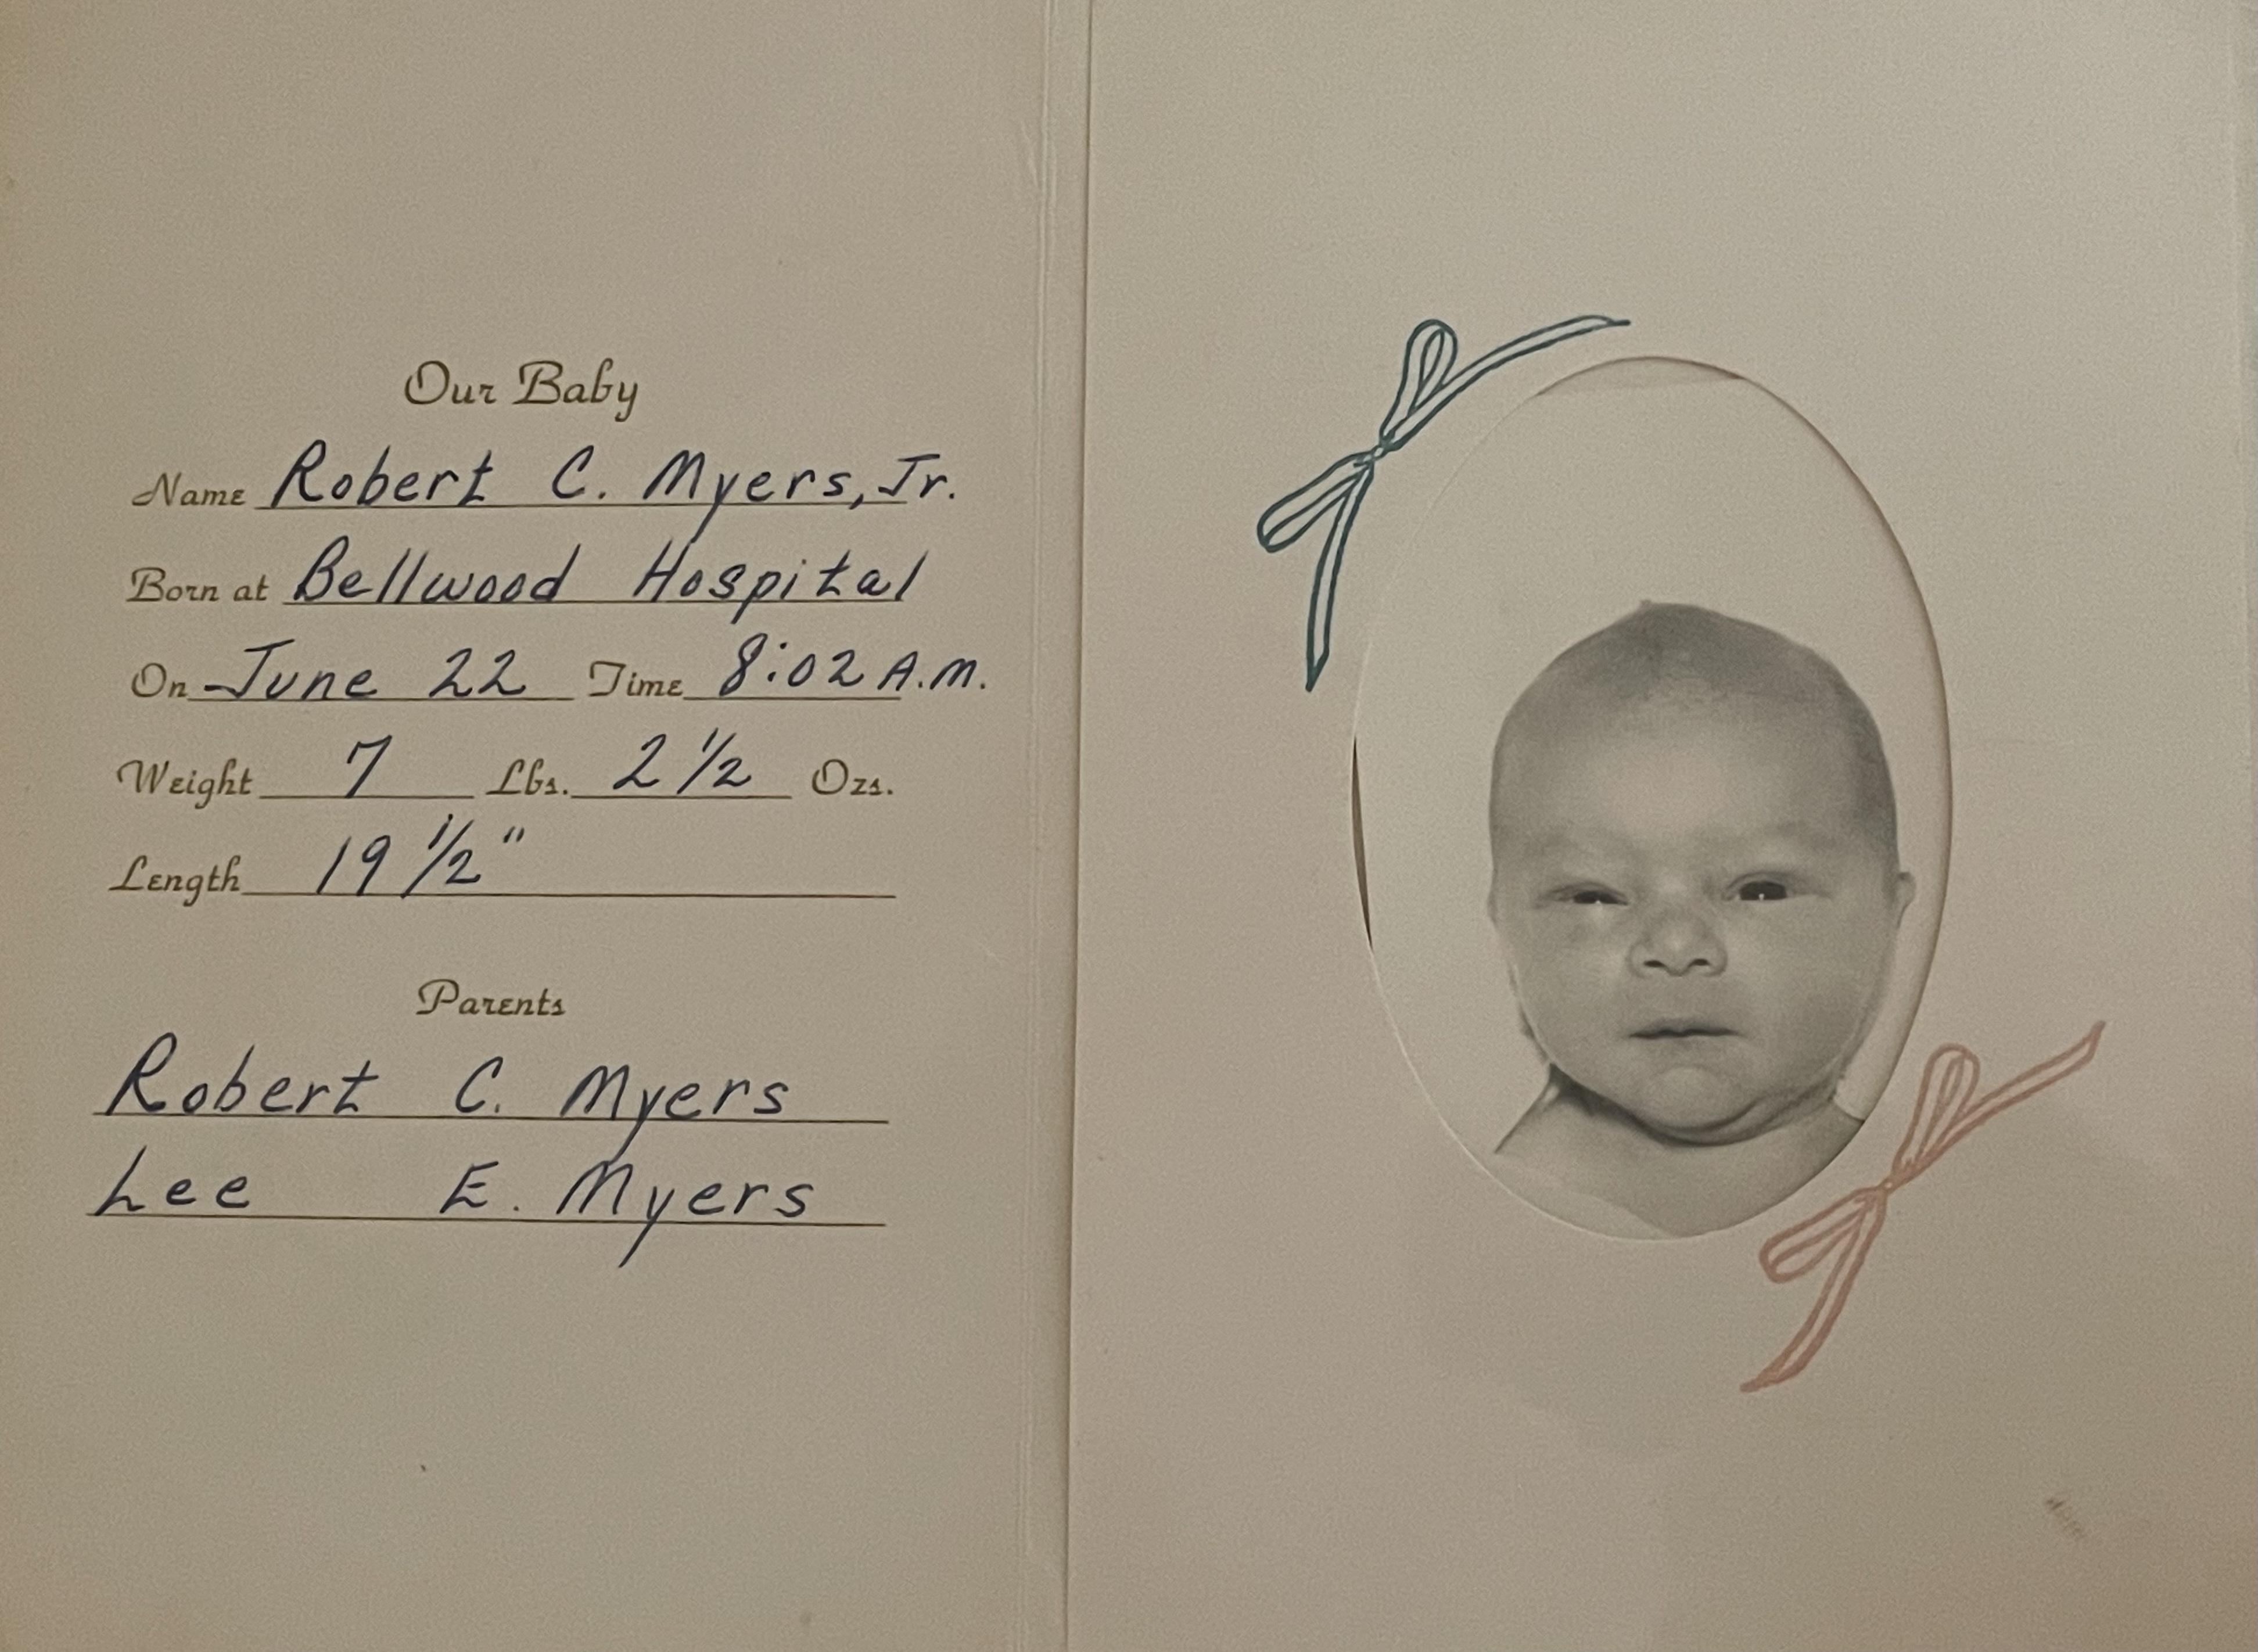 Our Baby
Name Robert C. Myers, Jr.
Born at Bellwood Hospital
On June 22 Time 8:02 A.M.
Weight 7 Lbs. 2 1/2 Ozs.
Length 19 1/2"
Parents
Robert C. Myers
Lee E. Myers